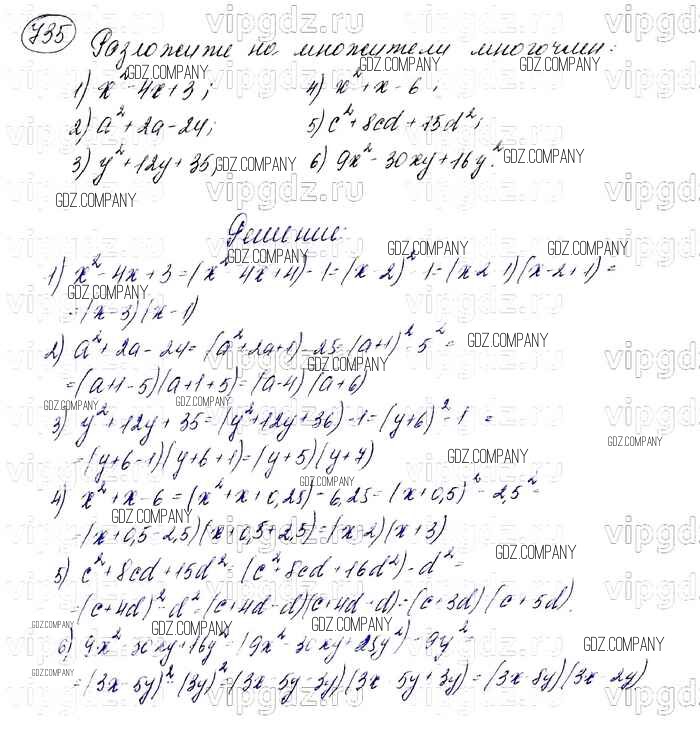 735 Разложите на множители многочлен:
1) x² - 4x + 3; 4) x² + x - 6;
2) a² + 2a - 24; 5) c² + 8cd + 15d²;
3) y² + 12y + 35; 6) 9x² - 30xy + 16y².
Решение:
1) x² - 4x + 3 = (x² 4x + 4) - 1 = (x - 2)² - 1 = (x - 2 - 1)(x - 2 + 1) =
= (x - 3)(x - 1)
2) a² + 2a - 24 = (a² + 2a + 1) - 25 = (a + 1)² - 5² =
= (a + 1 - 5)(a + 1 + 5) = (a - 4)(a + 6)
3) y² + 12y + 35 = (y² + 12y + 36) - 1 = (y + 6)² - 1 =
= (y + 6 - 1)(y + 6 + 1) = (y + 5)(y + 7)
4) x² + x - 6 = (x² + x + 0,25) - 6,25 = (x + 0,5)² - 2,5² =
= (x + 0,5 - 2,5)(x + 0,5 + 2,5) = (x - 2)(x + 3)
5) c² + 8cd + 15d² = (c² 8cd + 16d²) - d² =
= (c + 4d)² - d² = (c + 4d - d)(c + 4d - d) = (c + 3d)(c + 5d).
6) 9x² - 30xy + 16y² = (9x² - 30xy + 25y²) - 9y² =
= (3x - 5y)² - (3y)² = (3x - 5y - 3y)(3x 5y + 3y) = (3x - 8y)(3x - 2y)
vipgdz.ru
GDZ.COMPANY